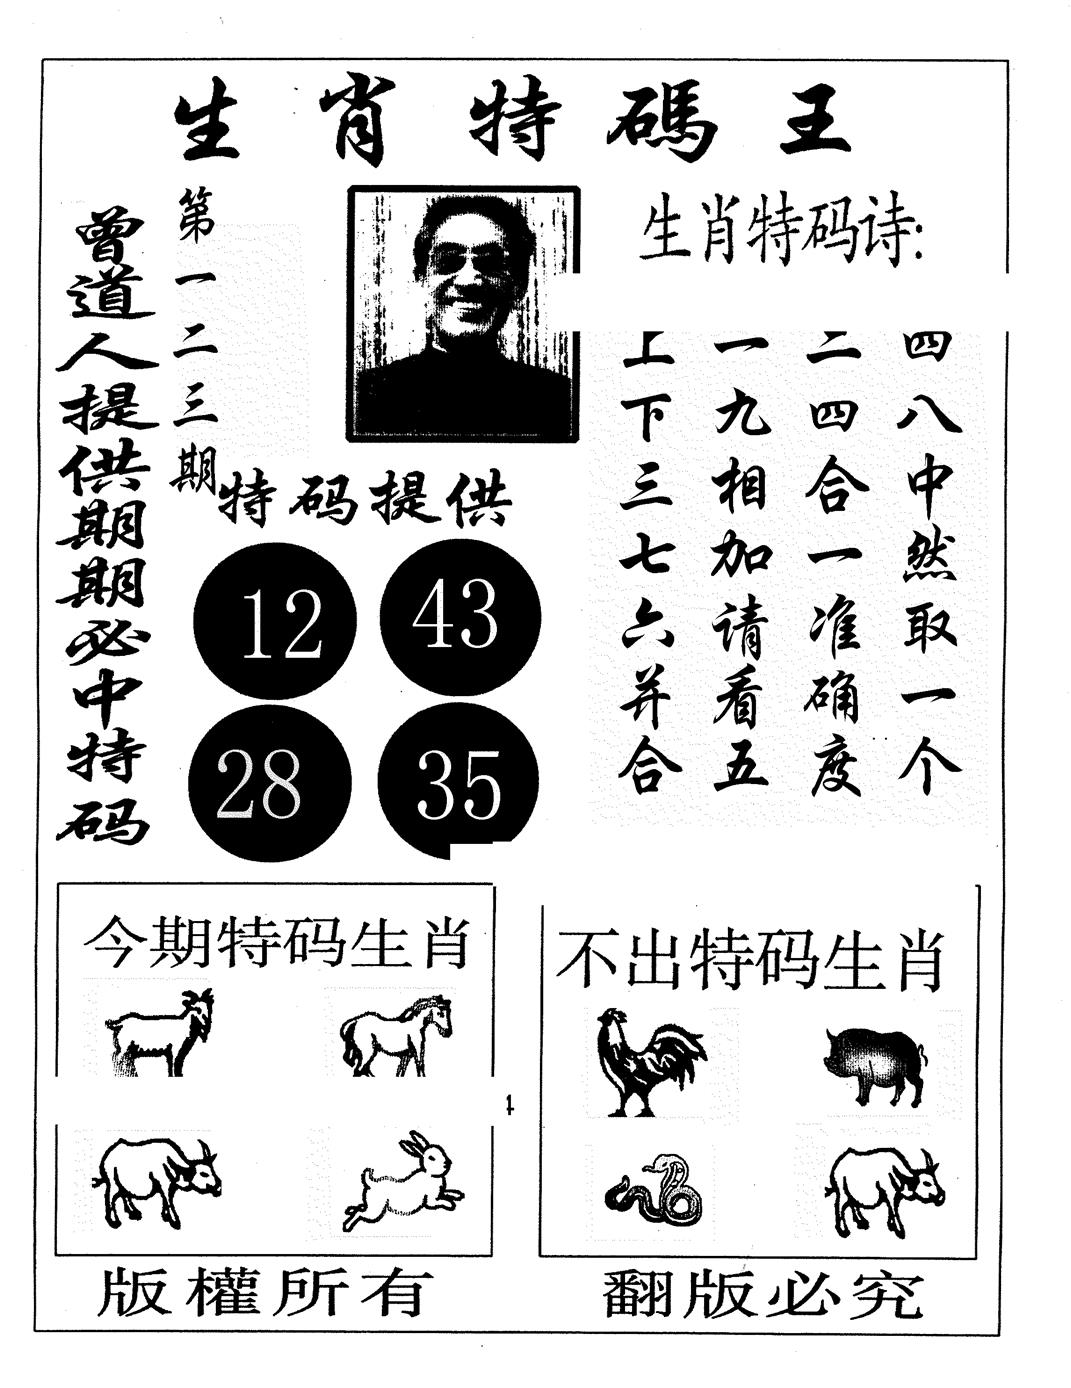 生肖特碼王
曾道人提供期期必中特码
第一二三期
生肖特码诗:
上下三七六并合
一九相加请看五
二四合一准确度
四八中然取一个
特码提供
12 43
28 35
今期特码生肖
不出特码生肖
版權所有
翻版必究